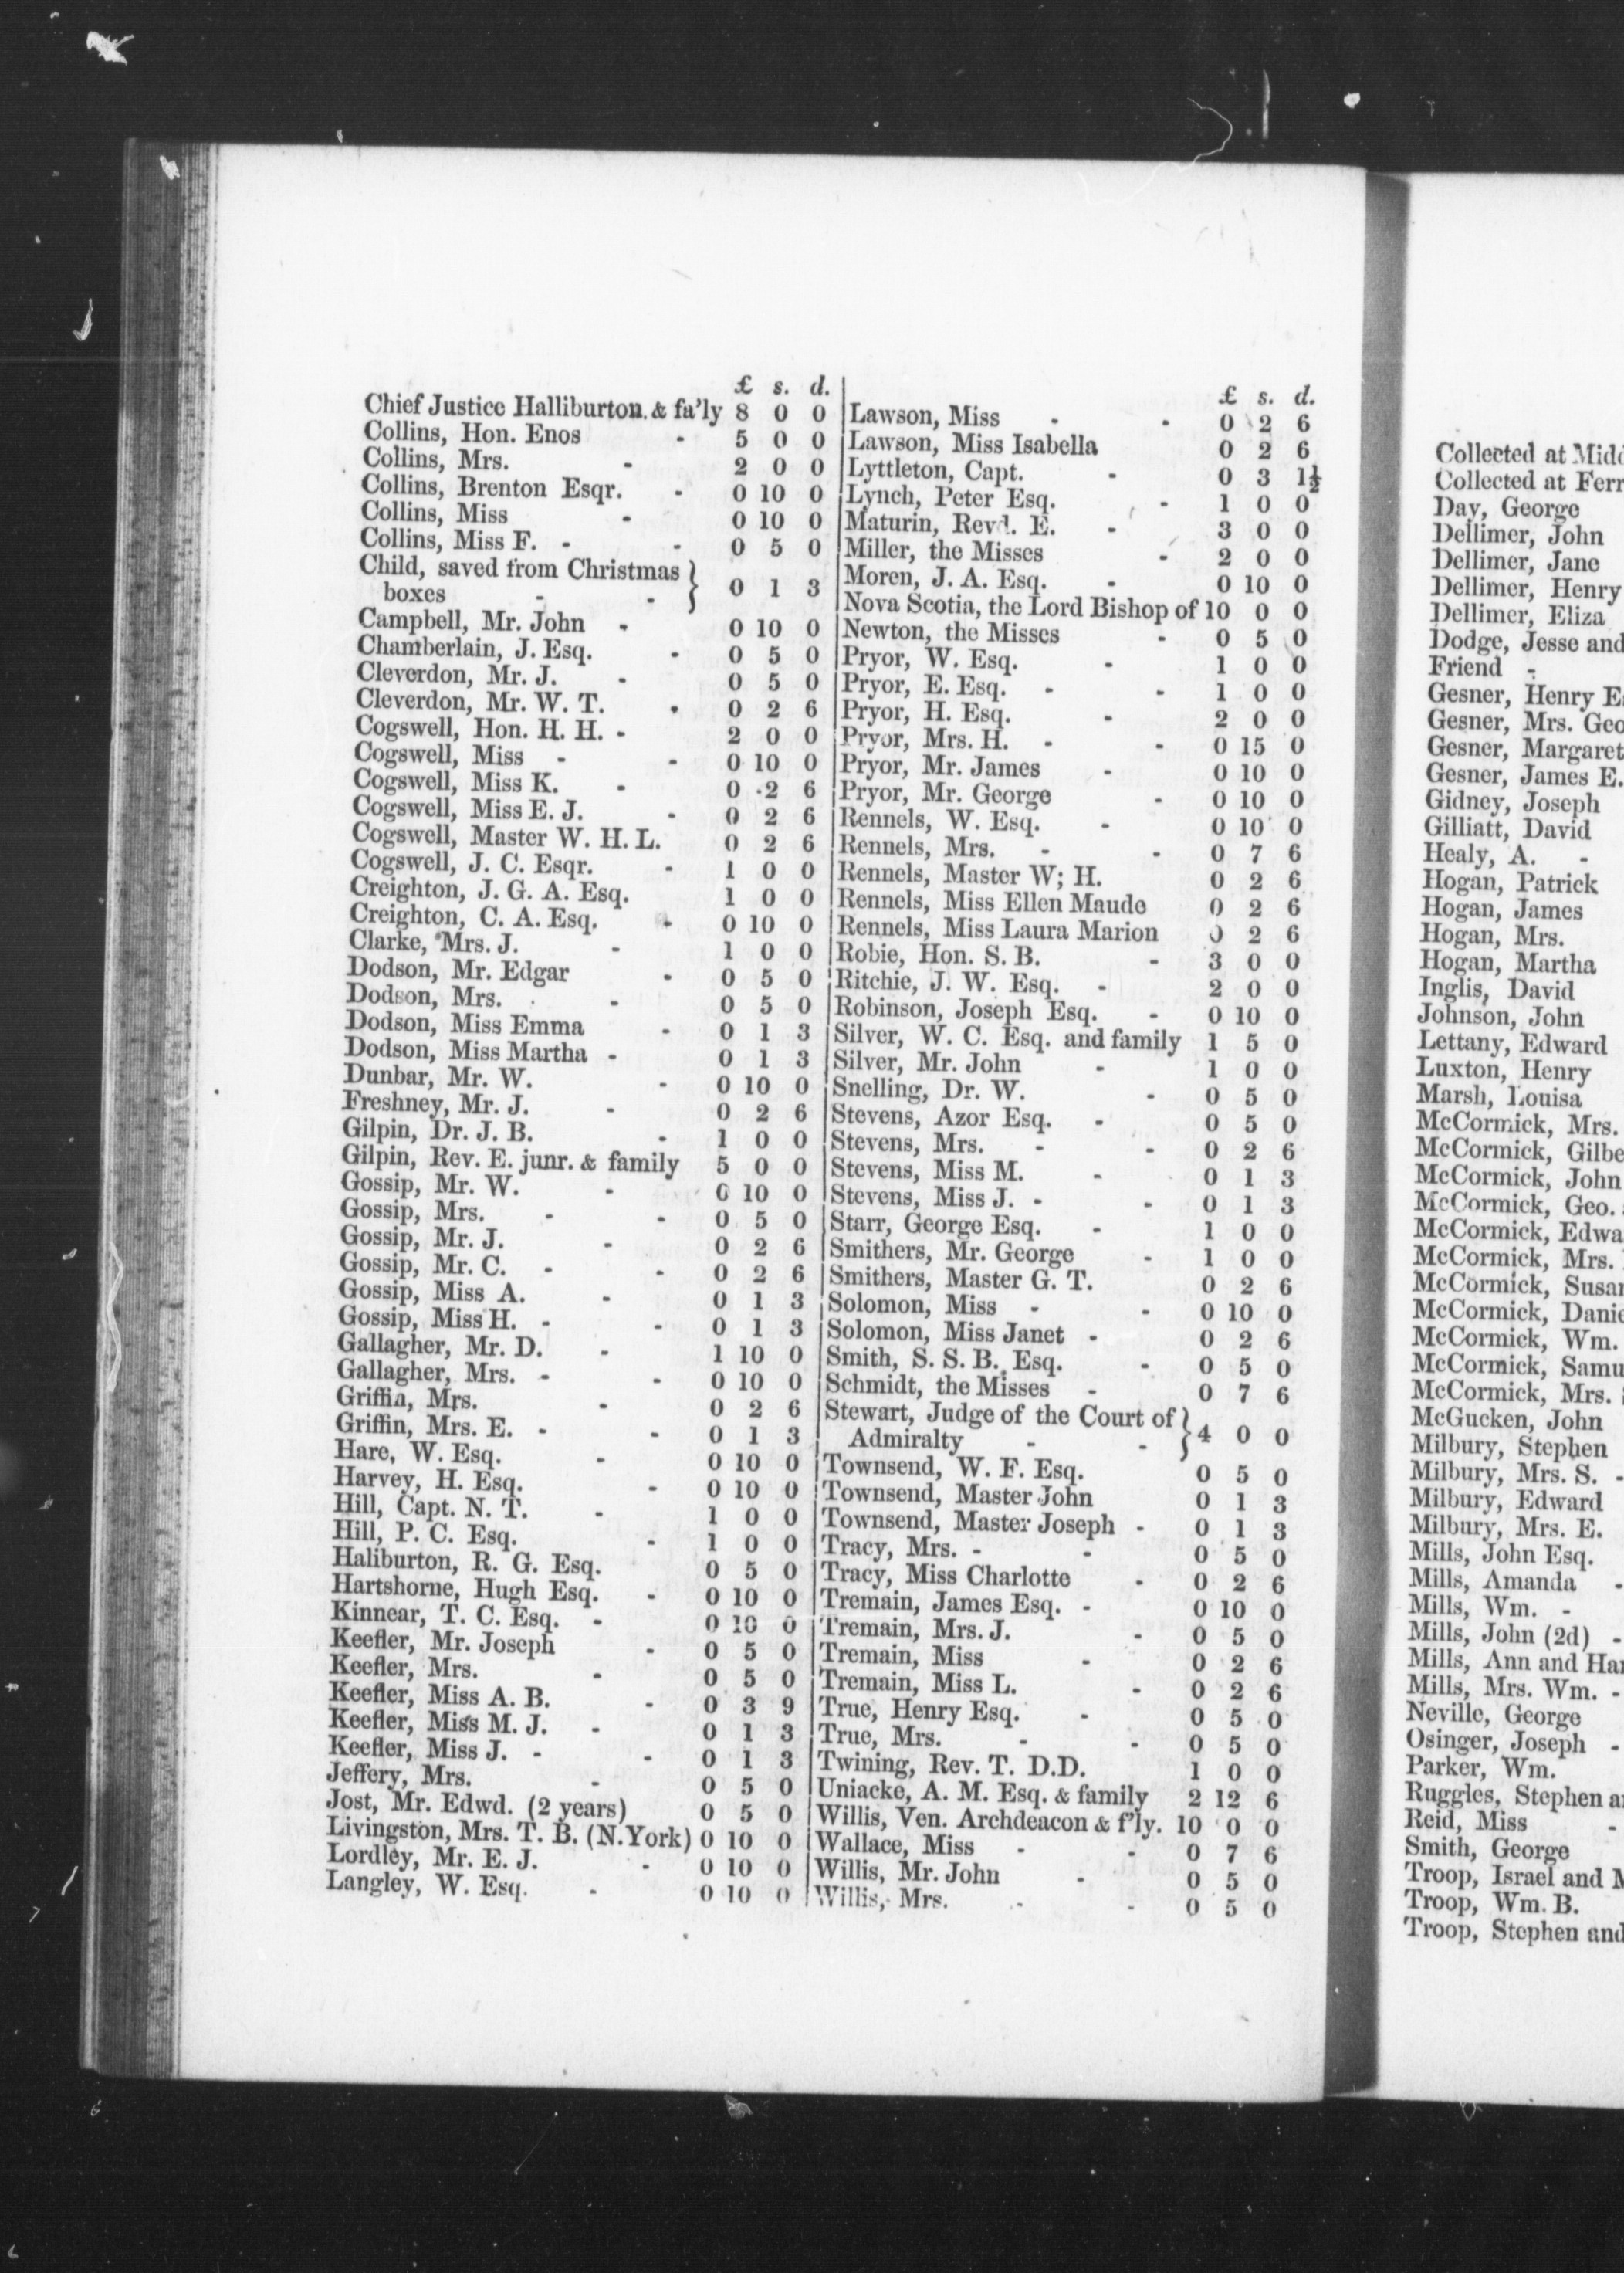 £ s. d.
Chief Justice Halliburton. & fa'ly 8 0 0
Collins, Hon. Enos - 5 0 0
Collins, Mrs. - 2 0 0
Collins, Brenton Esqr. - 0 10 0
Collins, Miss - 0 10 0
Collins, Miss F. - - 0 5 0
Child, saved from Christmas
boxes - - } 0 1 3
Campbell, Mr. John - 0 10 0
Chamberlain, J. Esq. - 0 5 0
Cleverdon, Mr. J. - 0 5 0
Cleverdon, Mr. W. T. - 0 2 6
Cogswell, Hon. H. H. - 2 0 0
Cogswell, Miss - - 0 10 0
Cogswell, Miss K. - 0 2 6
Cogswell, Miss E. J. - 0 2 6
Cogswell, Master W. H. L. 0 2 6
Cogswell, J. C. Esqr. - 1 0 0
Creighton, J. G. A. Esq. 1 0 0
Creighton, C. A. Esq. - 0 10 0
Clarke, Mrs. J. - 1 0 0
Dodson, Mr. Edgar - 0 5 0
Dodson, Mrs. - 0 5 0
Dodson, Miss Emma - 0 1 3
Dodson, Miss Martha - 0 1 3
Dunbar, Mr. W. - 0 10 0
Freshney, Mr. J. - 0 2 6
Gilpin, Dr. J. B. - 1 0 0
Gilpin, Rev. E. junr. & family 5 0 0
Gossip, Mr. W. - 0 10 0
Gossip, Mrs. - - 0 5 0
Gossip, Mr. J. - 0 2 6
Gossip, Mr. C. - - 0 2 6
Gossip, Miss A. - 0 1 3
Gossip, Miss H. - - 0 1 3
Gallagher, Mr. D. - 1 10 0
Gallagher, Mrs. - - 0 10 0
Griffin, Mrs. - 0 2 6
Griffin, Mrs. E. - - 0 1 3
Hare, W. Esq. - 0 10 0
Harvey, H. Esq. - 0 10 0
Hill, Capt. N. T. - 1 0 0
Hill, P. C. Esq. - 1 0 0
Haliburton, R. G. Esq. 0 5 0
Hartshorne, Hugh Esq. - 0 10 0
Kinnear, T. C. Esq. - 0 10 0
Keefler, Mr. Joseph - 0 5 0
Keefler, Mrs. - 0 5 0
Keefler, Miss A. B. - 0 3 9
Keefler, Miss M. J. - 0 1 3
Keefler, Miss J. - - 0 1 3
Jeffery, Mrs. - 0 5 0
Jost, Mr. Edwd. (2 years) 0 5 0
Livingston, Mrs. T. B. (N.York) 0 10 0
Lordley, Mr. E. J. - 0 10 0
Langley, W. Esq. - 0 10 0
£ s. d.
Lawson, Miss - - 0 2 6
Lawson, Miss Isabella 0 2 6
Lyttleton, Capt. - 0 3 1½
Lynch, Peter Esq. - 1 0 0
Maturin, Revd. E. - 3 0 0
Miller, the Misses - 2 0 0
Moren, J. A. Esq. - 0 10 0
Nova Scotia, the Lord Bishop of 10 0 0
Newton, the Misses - 0 5 0
Pryor, W. Esq. - 1 0 0
Pryor, E. Esq. - - 1 0 0
Pryor, H. Esq. - 2 0 0
Pryor, Mrs. H. - - 0 15 0
Pryor, Mr. James - 0 10 0
Pryor, Mr. George - 0 10 0
Rennels, W. Esq. - 0 10 0
Rennels, Mrs. - - 0 7 6
Rennels, Master W; H. 0 2 6
Rennels, Miss Ellen Maude 0 2 6
Rennels, Miss Laura Marion 0 2 6
Robie, Hon. S. B. - 3 0 0
Ritchie, J. W. Esq. - 2 0 0
Robinson, Joseph Esq. - 0 10 0
Silver, W. C. Esq. and family 1 5 0
Silver, Mr. John - 1 0 0
Snelling, Dr. W. - 0 5 0
Stevens, Azor Esq. - 0 5 0
Stevens, Mrs. - - 0 2 6
Stevens, Miss M. - 0 1 3
Stevens, Miss J. - - 0 1 3
Starr, George Esq. - 1 0 0
Smithers, Mr. George - 1 0 0
Smithers, Master G. T. 0 2 6
Solomon, Miss - - 0 10 0
Solomon, Miss Janet - 0 2 6
Smith, S. S. B. Esq. - 0 5 0
Schmidt, the Misses - 0 7 6
Stewart, Judge of the Court of
Admiralty - - } 4 0 0
Townsend, W. F. Esq. 0 5 0
Townsend, Master John 0 1 3
Townsend, Master Joseph - 0 1 3
Tracy, Mrs. - - 0 5 0
Tracy, Miss Charlotte - 0 2 6
Tremain, James Esq. - 0 10 0
Tremain, Mrs. J. - 0 5 0
Tremain, Miss - 0 2 6
Tremain, Miss L. - 0 2 6
True, Henry Esq. - 0 5 0
True, Mrs. - - 0 5 0
Twining, Rev. T. D.D. 1 0 0
Uniacke, A. M. Esq. & family 2 12 6
Willis, Ven. Archdeacon & f'ly. 10 0 0
Wallace, Miss - - 0 7 6
Willis, Mr. John - 0 5 0
Willis, Mrs. - - 0 5 0
Collected at
Collected at
Day, George
Dellimer, John
Dellimer, Jane
Dellimer, Henry
Dellimer, Eliza
Dodge, Jesse and
Friend -
Gesner, Henry
Gesner, Mrs.
Gesner, Margaret
Gesner, James E.
Gidney, Joseph
Gilliatt, David
Healy, A. -
Hogan, Patrick
Hogan, James
Hogan, Mrs.
Hogan, Martha
Inglis, David
Johnson, John
Lettany, Edward
Luxton, Henry
Marsh, Louisa
McCormick, Mrs.
McCormick,
McCormick, John
McCormick, Geo.
McCormick,
McCormick, Mrs.
McCormick,
McCormick,
McCormick, Wm.
McCormick,
McCormick, Mrs.
McGucken, John
Milbury, Stephen
Milbury, Mrs. S. -
Milbury, Edward
Milbury, Mrs. E.
Mills, John Esq.
Mills, Amanda -
Mills, Wm. -
Mills, John (2d) -
Mills, Ann and
Mills, Mrs. Wm. -
Neville, George
Osinger, Joseph -
Parker, Wm.
Ruggles, Stephen
Reid, Miss -
Smith, George
Troop, Israel and
Troop, Wm. B.
Troop, Stephen and